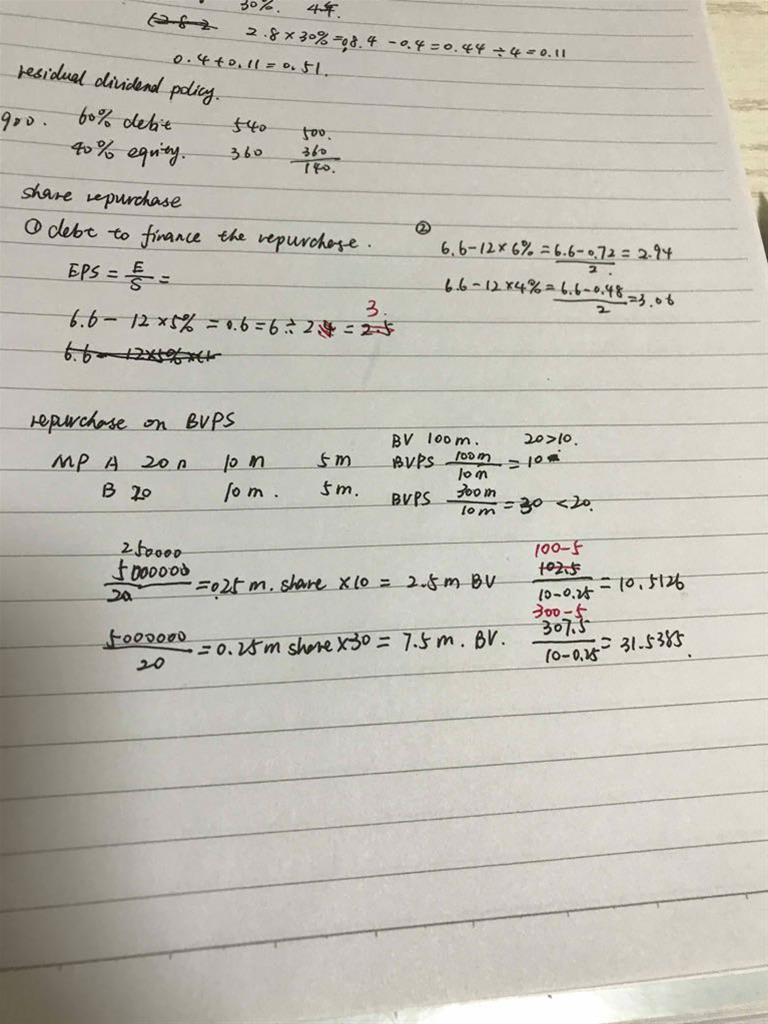 30%. 4年.
2.8×30%=0.8.4-0.4=0.44÷4=0.11
0.4+0.11=0.51.
residual dividend policy.
900. 60% debt 540 500.
40% equity. 360 360
140.
share repurchase
① debt to finance the repurchase.
EPS = E/S =
3.
6.6- 12×5% = 0.6=6÷2.4 = 2.5
6.6- 12×5%×(1
②
6.6-12×6% = 6.6-0.72/2. = 2.94
6.6-12×4% = 6.6-0.48/2 =3.06
repurchase on BVPS
BV 100m. 20>10.
MP A 20 10m 5m BVPS 100m/10m = 10
B 20 10m. 5m. BVPS 300m/10m = 30 <20.
250000 100-5
5000000/20 =0.25m.share ×10 = 2.5m BV 102.5/10-0.25 = 10.5126
300-5
5000000/20 =0.25m share×30 = 7.5m. BV. 307.5/10-0.25 = 31.5385.